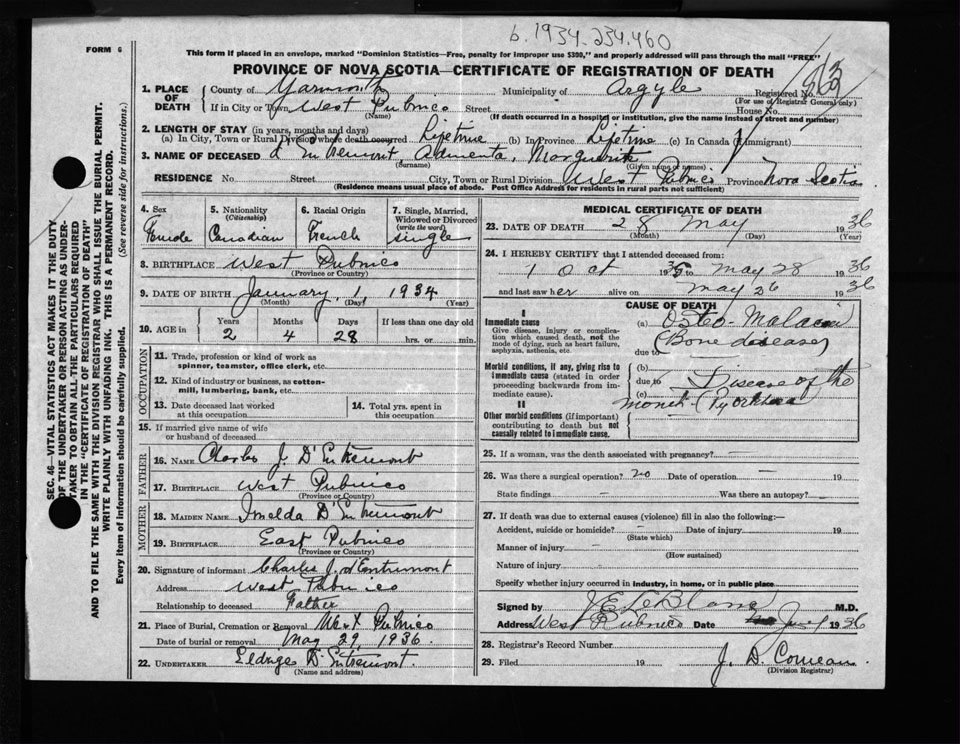 b. 1934-234-460
FORM 6
This form if placed in an envelope, marked "Dominion Statistics—Free, penalty for improper use $300," and properly addressed will pass through the mail "FREE"
PROVINCE OF NOVA SCOTIA—CERTIFICATE OF REGISTRATION OF DEATH
1. PLACE OF DEATH
County of Yarmouth Municipality of Argyle Registered No.
(For use of Registrar General only)
If in City or Town West Pubnico Street House No.
(Name) (If death occurred in a hospital or institution, give the name instead of street and number)
2. LENGTH OF STAY (in years, months and days)
(a) In City, Town or Rural Division where death occurred Lifetime (b) In Province Lifetime (c) In Canada (if immigrant)
3. NAME OF DECEASED d'Entremont, Marguerite
(Surname) (Given name or names)
RESIDENCE No. Street City, Town or Rural Division West Pubnico Province Nova Scotia
(Residence means usual place of abode. Post Office Address for residents in rural parts not sufficient)
4. Sex Female
5. Nationality (Citizenship) Canadian
6. Racial Origin French
7. Single, Married, Widowed or Divorced (write the word) single
8. BIRTHPLACE West Pubnico
(Province or Country)
9. DATE OF BIRTH January 1 1934
(Month) (Day) (Year)
10. AGE in Years Months Days If less than one day old
2 4 28 hrs. or min.
OCCUPATION
11. Trade, profession or kind of work as spinner, teamster, office clerk, etc.
12. Kind of industry or business, as cotton-mill, lumbering, bank, etc.
13. Date deceased last worked at this occupation
14. Total yrs. spent in this occupation
15. If married give name of wife or husband of deceased
FATHER
16. NAME Charles J. D'Entremont
17. BIRTHPLACE West Pubnico
(Province or Country)
MOTHER
18. MAIDEN NAME Imelda D'Entremont
19. BIRTHPLACE East Pubnico
(Province or Country)
20. Signature of informant Charles J. d'Entremont
Address West Pubnico
Relationship to deceased Father
21. Place of Burial, Cremation or Removal West Pubnico
Date of burial or removal May 29, 1936.
22. UNDERTAKER D'Entremont.
(Name and address)
MEDICAL CERTIFICATE OF DEATH
23. DATE OF DEATH 28 May 1936
(Month) (Day) (Year)
24. I HEREBY CERTIFY that I attended deceased from:
1 Oct 193 to May 28 1936
and last saw her alive on May 26 1936
CAUSE OF DEATH
I
Immediate cause
Give disease, injury or complication which caused death, not the mode of dying, such as heart failure, asphyxia, asthenia, etc.
(a) Osteo-Malacia
(Bone disease)
due to
Morbid conditions, if any, giving rise to immediate cause (stated in order proceeding backwards from immediate cause).
(b)
due to Disease of the
(c)
mouth (Pyorrhea
II
Other morbid conditions (if important) contributing to death but not causally related to immediate cause.
25. If a woman, was the death associated with pregnancy? —
26. Was there a surgical operation? no Date of operation — 19
State findings — Was there an autopsy? —
27. If death was due to external causes (violence) fill in also the following:—
Accident, suicide or homicide? — Date of injury 19
(State which)
Manner of injury —
(How sustained)
Nature of injury —
Specify whether injury occurred in industry, in home, or in public place
Signed by LeBlanc M.D.
Address West Pubnico Date June 1 1936
28. Registrar's Record Number
29. Filed 19 J. D. Comeau
(Division Registrar)
SEC. 46—VITAL STATISTICS ACT MAKES IT THE DUTY
OF THE UNDERTAKER OR PERSON ACTING AS UNDER-
TAKER TO OBTAIN ALL THE PARTICULARS REQUIRED
IN THE "CERTIFICATE OF REGISTRATION OF DEATH"
AND TO FILE THE SAME WITH THE DIVISION REGISTRAR WHO SHALL ISSUE THE BURIAL PERMIT.
WRITE PLAINLY WITH UNFADING INK. THIS IS A PERMANENT RECORD.
Every item of information should be carefully supplied. (See reverse side for instructions.)